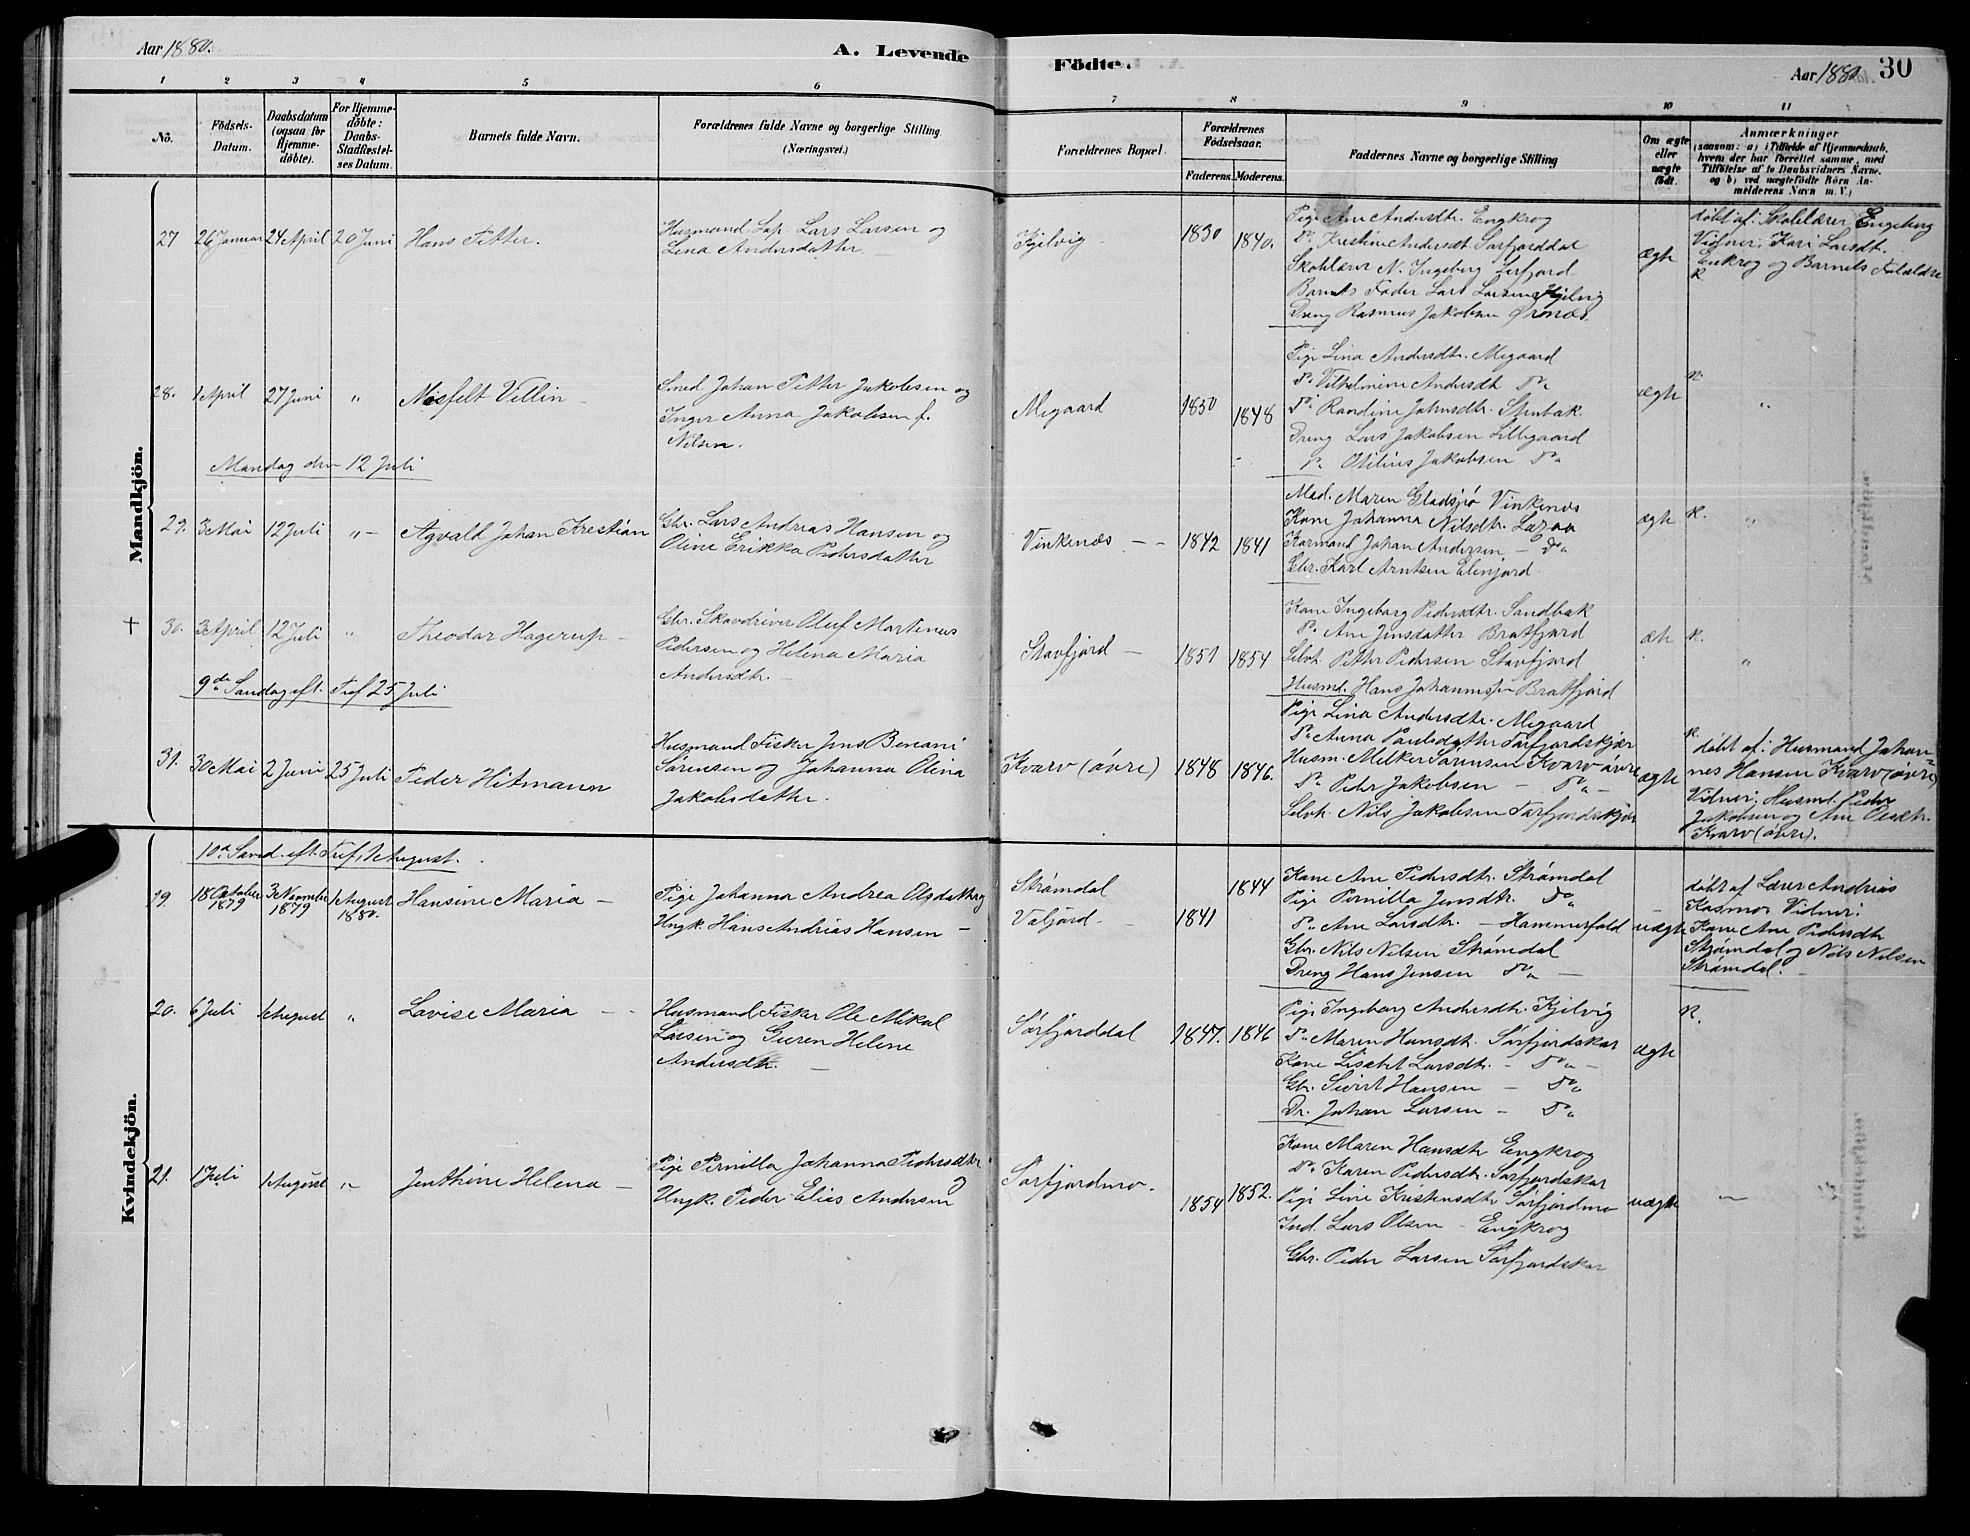 Aar 1880.
A. Levende
Födte.
Aar 1880
30
1 2 3 4 5 6 7 8 9 10 11
No.
Födsels-
Datum.
Daabsdatum
(ogsaa for
Hjemme-
döbte).
For Hjemme-
döbte:
Daabs-
Stadfæstel-
ses Datum.
Barnets fulde Navn.
Forældrenes fulde Navne og borgerlige Stilling
(Næringsvei.)
Forældrenes Bopæl.
Forældrenes
Födselsaar.
Faderens. Moderens.
Faddernes Navne og borgerlige Stilling
Om ægte
eller
uægte
födt.
Anmærkninger
(saasom: a) i Tilfælde af Hjemmedaab,
hvem der har forrettet samme, med
Tilföielse af to Daabsvidners Navne.
og b) ved uægtefödte Börn An-
melderens Navn m. V.)
Mandkjön.
27 26 Januar 24 April 20 Juni Hans Petter.
Husmand Lap Lars Larsen og
Lena Andersdatter
Kjelvig 1830 1840.
Pige Ane Andersdtr. Engkrog
Do Kristine Andersdt Sørfjorddal
Skolelærer N. Ingeberg Sørfjord
Barnets Fader Lars Larsen Kjelvig
Dreng Rasmus Jakobsen Ørnnæs.
ægte
döbt af: Skolelærer Engeberg
Vidner: Kari Larsdt.
Enkrog og Barnets Forældre
K
28. 1 April 27 Juni " Mosfelt Villin
Smed Johan Petter Jakobsen og
Inger Anna Jakobsen f.
Nilsen.
Megaard 1850 1848
Pige Lina Andersdtr. Megaard
Do Vilhelmine Andersdt Do
Do Raardine Johnsdtr. Stubak
Dreng Lars Jakobsen Lillegaard
Do Otilius Jakobsen Do
ægte K. "
Mandag den 12 Juli
29. 3 Mai 12 Juli " Agvald Johan Krestian
Gbr. Lars Andreas Hansen og
Oline Erikka Pedersdatter
Vinkenæs 1842 1841
Mad. Maren Gladsjø Vinkenæs
Kone Johanna Nilsdtr. Laraa
Karmand Johan Andersen Do
Gbr. Karl Arntsen Elvfjord.
ægte K. "
† 30. 3 April 12 Juli " Theodor Hagerup
Gbr. Skovdriver Oluf Martenus
Pedersen og Helena Maria
Andersdtr.
Stavfjord 1851 1854
Kone Ingeborg Pedersdtr. Sandbak
Do Ane Jensdatter Bratfjord
Selvh. Petter Pedersen Stavfjord
Husmd. Hans Johannesen Bratfjord
æte K. "
9de Søndag eft. Tref 25 Juli
31. 30 Mai 2 Juni 25 Juli Peder Hitmann
Husmand Fisker Jens Benoani
Sørensen og Johanna Olina
Jakobsdatter.
Kvarv (övre) 1848 1846.
Pige Lina Andersdtr. Megaard
Do Anna Paulsdatter Sørfjordskjær
Husm. Melker Sørensen Kvarv övre
Do Peder Jakobsen Do
Selvh. Nils Jakobsen Sørfjordskjær
ægte
K.
döbt af: Husmand Johan-
nes Hansen Kvarv (övre)
Vidner: Husmd. Peder
Jakobsen og Ane Olsdtr.
Kvarv (övre).
Kvindekjön.
10de Sønd. eft. Tref. 1 August.
19. 18 October 1879 3 November 1879 1 August 1880. Hansine Maria
Pige Johanna Andrea Olsdatter og
Ungk. Hans Andreas Hansen
Strømdal
Valjord 1841 1844
Kone Ane Pedersdtr. Strømdal
Pige Pernilla Jensdtr. Do
Do Ane Larsdtr. Hammerfald
Gbr. Nils Nilsen Strømdal
Dreng Hans Jensen Do
uægte
döbt af Lærer Andreas
Rasmos Vidner:
Kone Ane Pedersdtr
Strømdal og Nils Nilsen
Strømdal.
20. 6 Juli 1 August " Lovise Maria
Husmand Fisker Ole Mikal
Larsen og Guren Helene
Andersdtr.
Sørfjorddal 1847. 1846
Pige Ingeborg Andersdtr. Kjelvig
Do Maren Hansdtr. Sørfjordskar
Kone Lisabet Larsdtr. Do
Gbr. Sivert Hansen Do
Dr. Johan Larsen Do
ægte K.
21. 1 Juli 1 August " Jenthine Helena
Pige Pernilla Johanna Pedersdtr
og
Ungk. Peder Elias Andersen
Sørfjordmo. 1854 1852.
Kone Maren Hansdtr Engkrog
Do Karen Pedersdtr. Sørfjordskar
Pige Line Kristensdtr Sørfjordmo
Ind. Lars Olsen Engkrog
Gbr. Peder Larsen Sørfjordskar
uægte